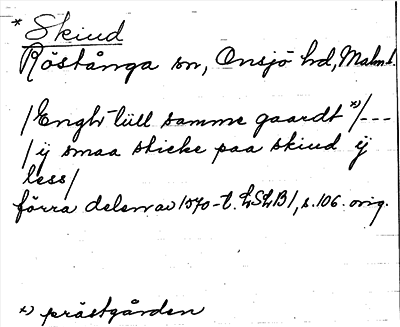 * Skiud
Röstånga sn, Onsjö hd, Malm.l.
/Enghr till samme gaardt *)/---
/ij smaa sticke paa skiud ij
less/
förra delen av 1570-t. LSLB1, s.106. orig.
*) prästgården